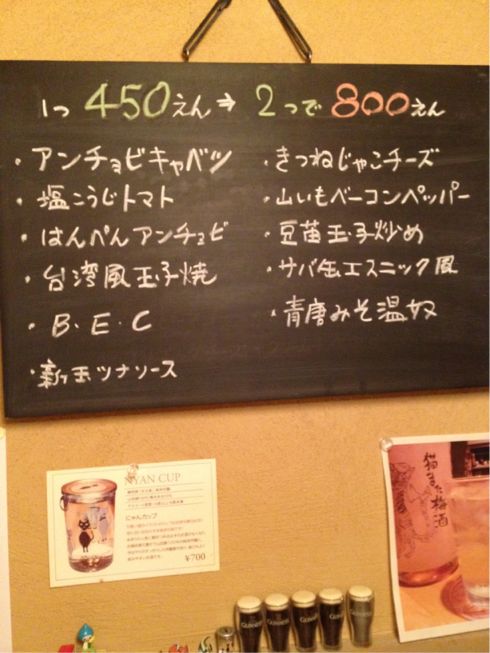 1つ 450えん⇒ 2つで 800えん
・アンチョビキャベツ
・塩こうじトマト
・はんぺんアンチョビ
・台湾風玉子焼
・B.E.C
・新玉ツナソース
・きつねじゃこチーズ
・山いもベーコンペッパー
・豆苗玉子炒め
・サバ缶エスニック風
・青唐みそ温奴
NYAN CUP
にゃんカップ
¥700
猫また梅酒
GUINNESS
GUINNESS
GUINNESS
GUINNESS
GUINNESS